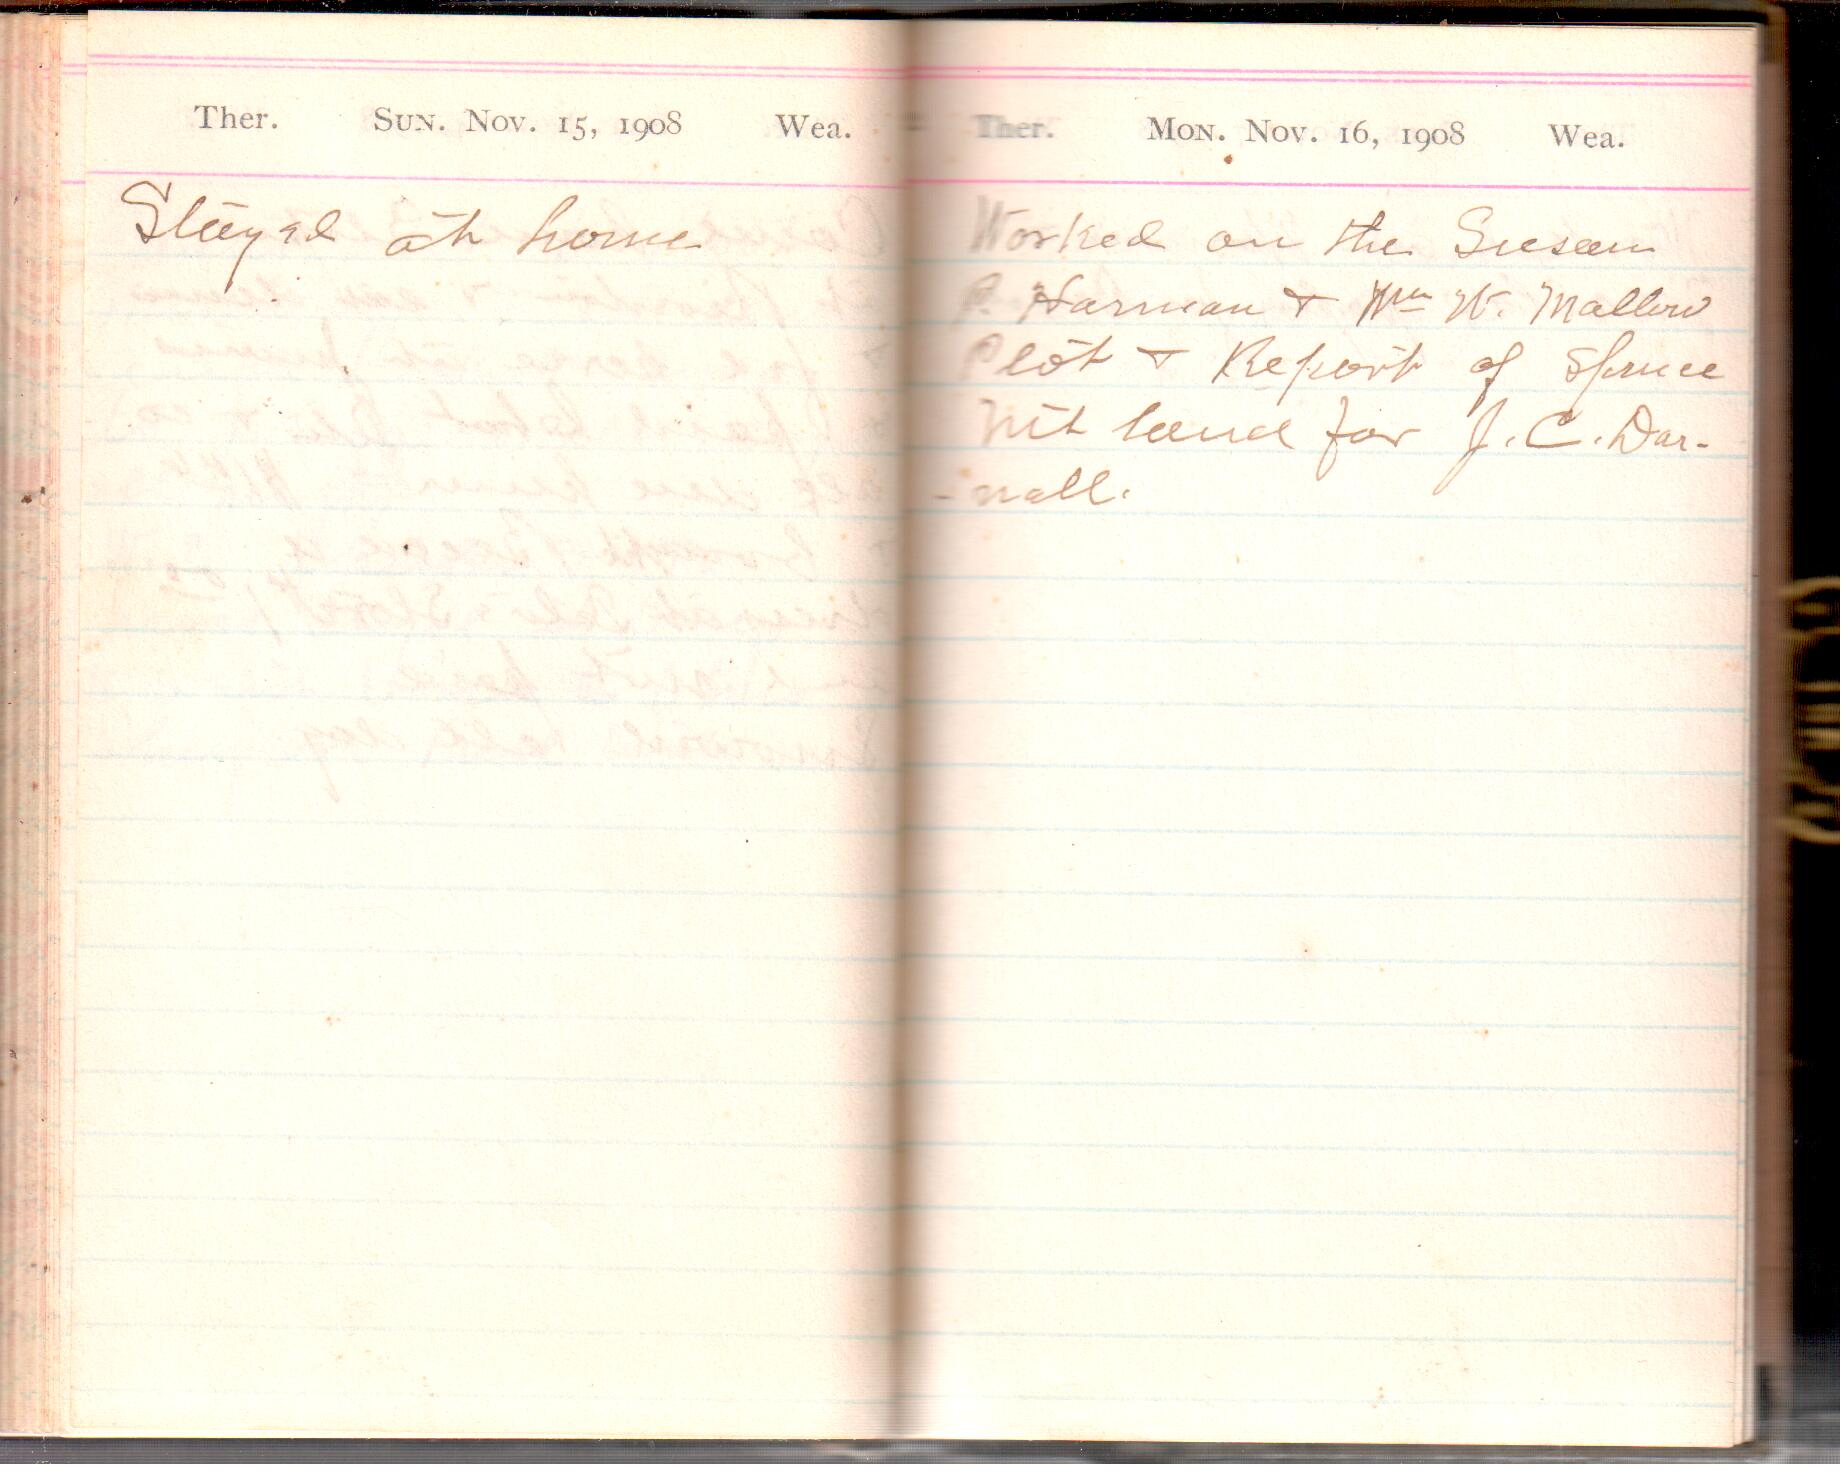 Ther. Sun. Nov. 15, 1908 Wea.
Stayed at home
Ther. Mon. Nov. 16, 1908 Wea.
Worked on the Susan
P. Harman & Wm W. Mallow
Plot & Report of Spruce
Mt land for J. C. Dar-
-nall.